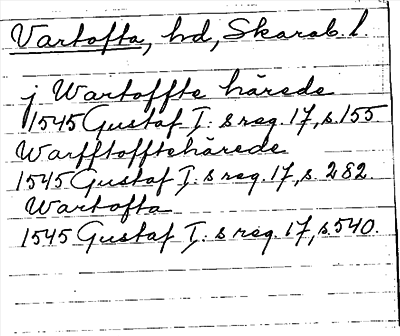 Vartofta, hd, Skarab. l.
j Wartoffte härede
1545 Gustaf I:s reg. 17, s. 155
Warfftofftehärede
1545 Gustaf I:s reg. 17, s. 282.
Wartofta
1545 Gustaf I:s reg. 17, s. 540.